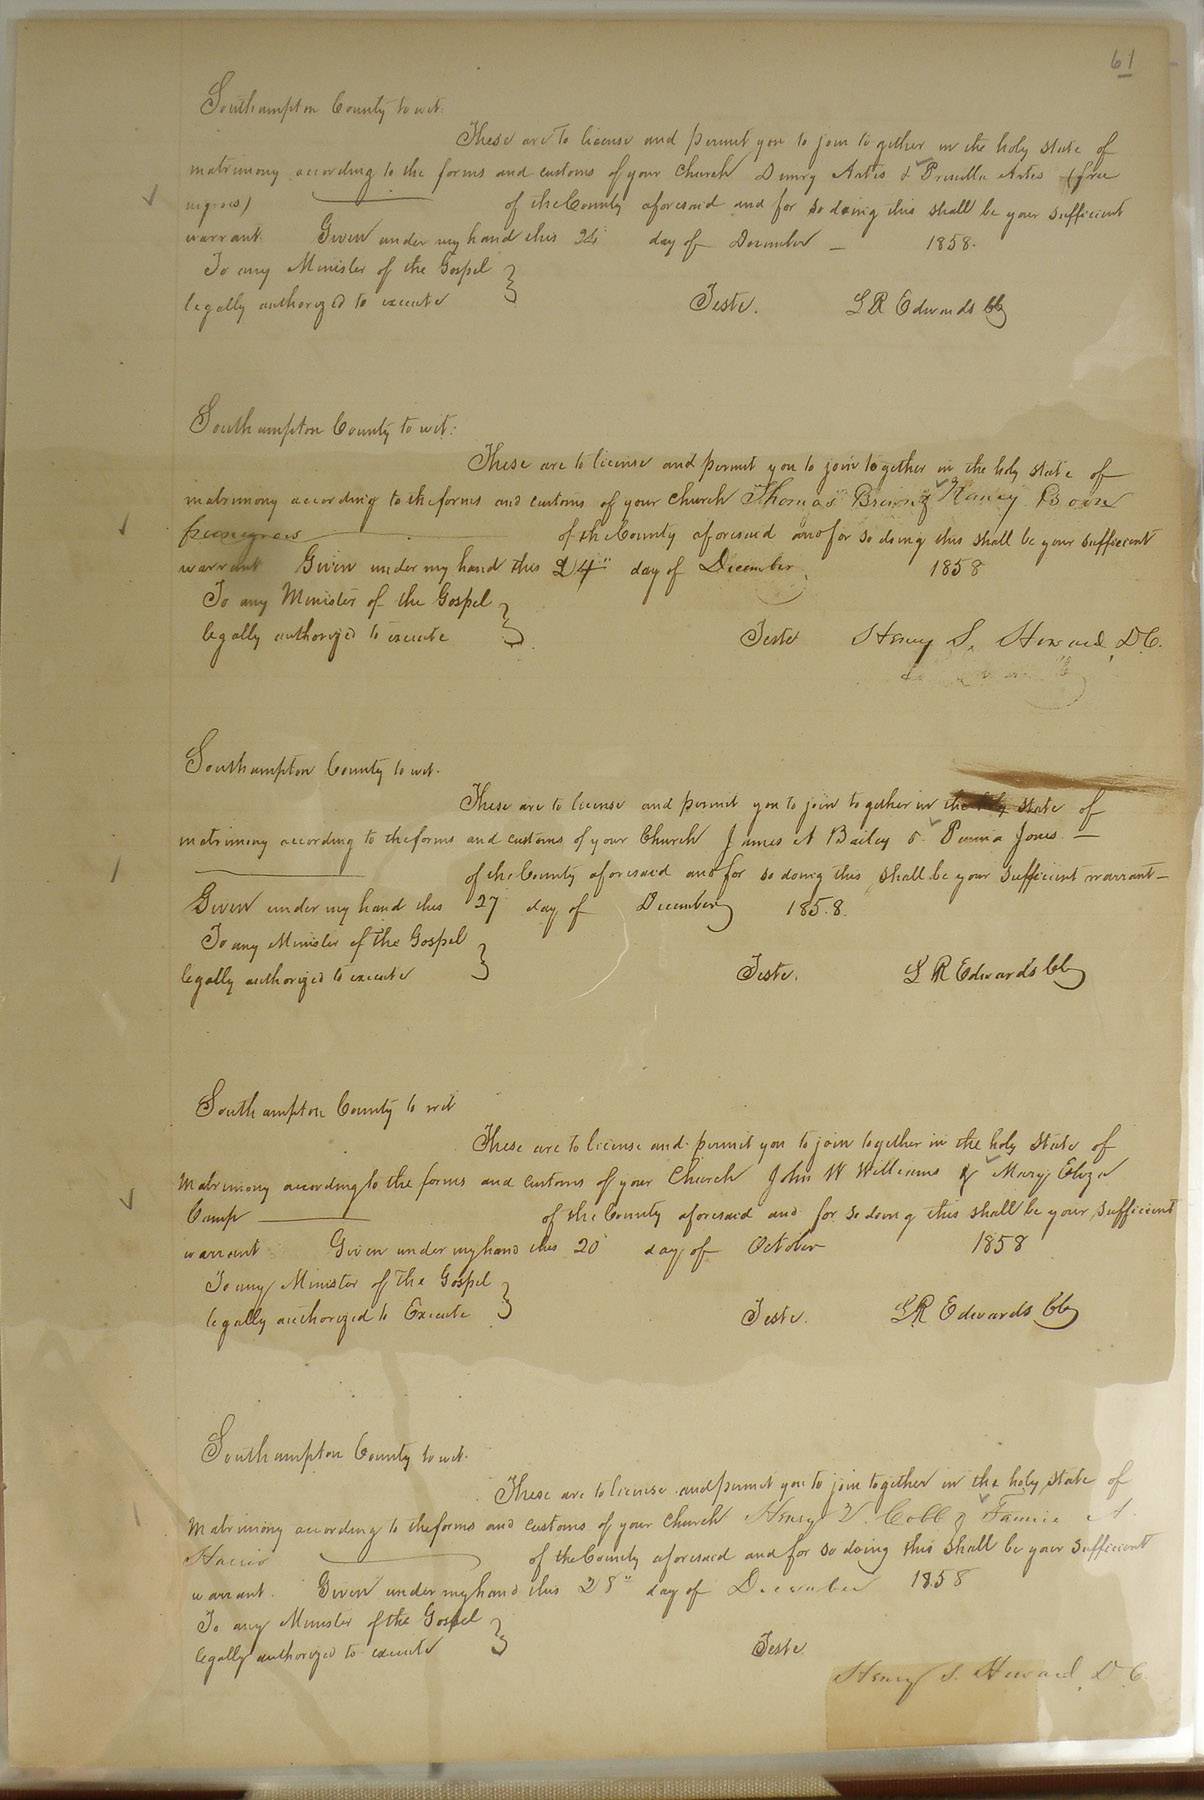 61
Southampton County to wit.
These are to license and permit you to join together in the holy state of
matrimony according to the forms and customs of your Church Demry Artis & Priscilla Artis (free
negroes) of the County aforesaid and for so doing this shall be your sufficient
warrant. Given under my hand this 24 day of December 1858.
To any Minister of the Gospel
legally authorized to execute
Teste. L R Edwards Clk
Southampton County to wit:
These are to license and permit you to join together in the holy state of
matrimony according to the forms and customs of your Church Thomas Brown & Nancy Boon
free negroes of the County aforesaid and for so doing this shall be your sufficient
warrant Given under my hand this 24" day of December 1858
To any Minister of the Gospel
legally authorized to execute
Teste Henry S. Howard, D.C.
Southampton County to wit.
These are to license and permit you to join together in the holy state of
matrimony according to the forms and customs of your Church James A Bailey & Jones
of the County aforesaid and for so doing this shall be your sufficient warrant
Given under my hand this 27 day of December 1858.
To any Minister of the Gospel
legally authorized to execute
Teste. L R Edwards Clk
Southampton County to wit
These are to license and permit you to join together in the holy state of
Matrimony according to the forms and customs of your Church John W Williams & Mary Eliza
Camp of the County aforesaid and for so doing this shall be your sufficient
warrant Given under my hand this 20 day of October 1858
To any Minister of the Gospel
legally authorized to Execute
Teste. L R Edwards Clk
Southampton County to wit.
These are to license and permit you to join together in the holy state of
Matrimony according to the forms and customs of your Church Henry V. Cobb & Fannie A.
Harris of the County aforesaid and for so doing this shall be your sufficient
warrant. Given under my hand this 28" day of December 1858
To any Minister of the Gospel
legally authorized to execute
Teste.
Henry S. Howard, D.C.